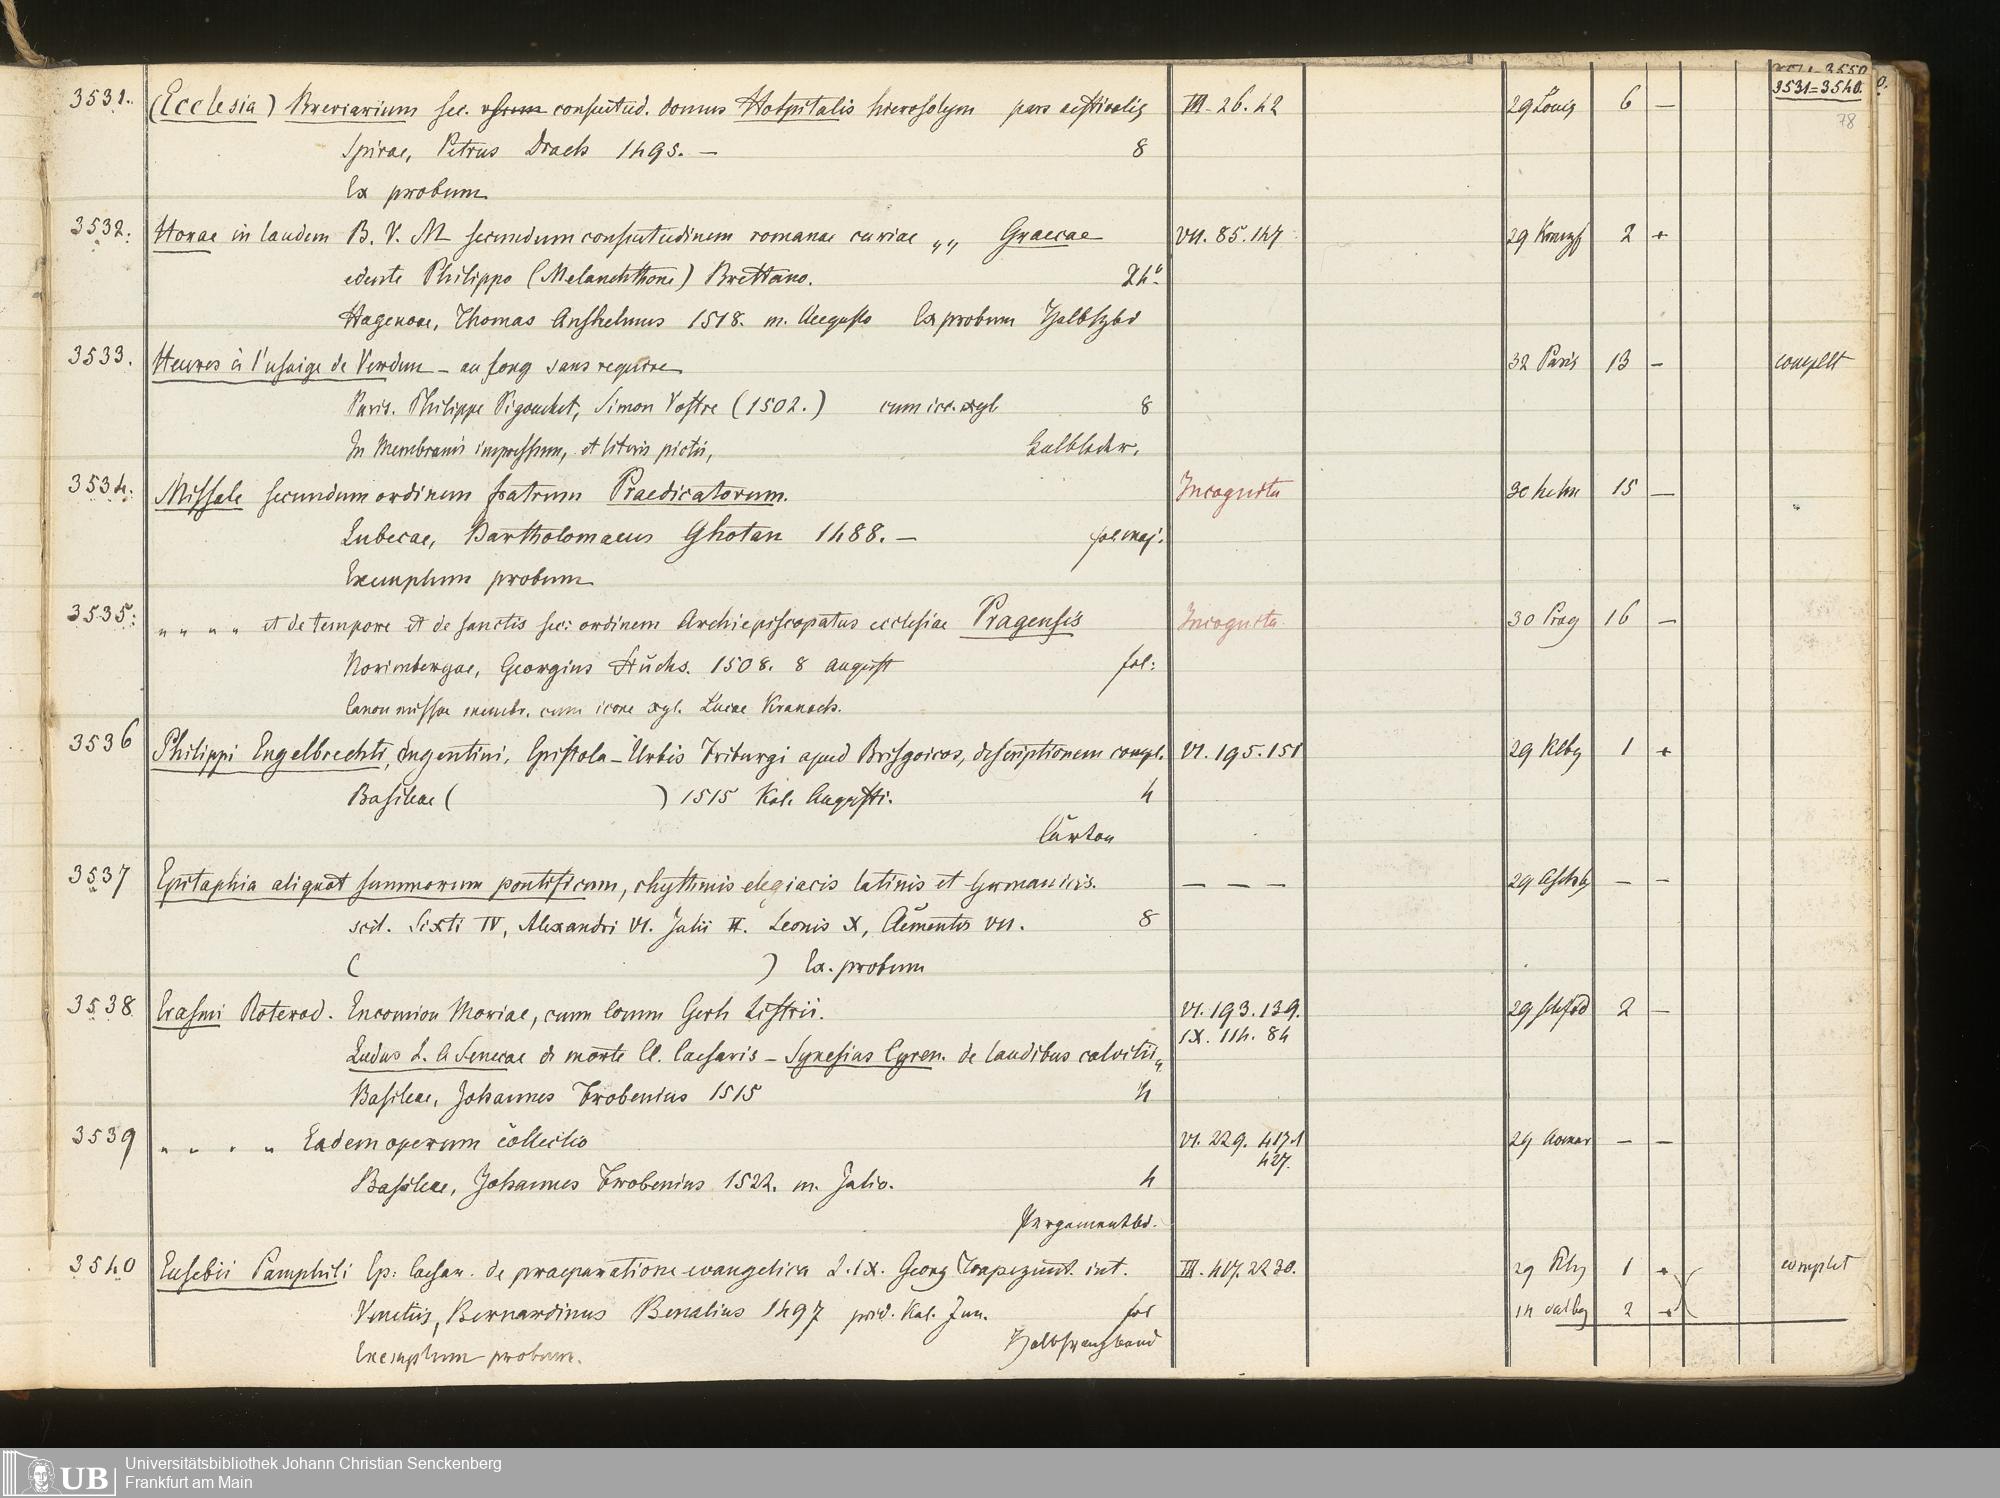 3531-3540.
78
3531. (Ecclesia) Breviarium sec. usum consuetud. domus Hospitalis hierosolym pars aestivalis III. 26. 42 29 6 —
Spirae, Petrus Drach 1495. — 8
Ex probum
3532. Horae in laudem B. V. M secundum consuetudinem romanae curiae „„ Graecae VII. 85. 147 29 2 +
edente Philippo (Melanchthone) Brettano. 24°.
Hagenoae, Thomas Anshelmus 1518. m. Augusto Ex probum Halbfzbd
3533. Heures à l'usaige de Verdun — au long sans requerre 32 Paris 13 — complet
Paris. Philippe Pigouchet, Simon Vostre (1502.) cum icc. xyl 8
In Membranis impressum, et literis pictis, Halbleder.
3534. Missale secundum ordinem fratrum Praedicatorum. Incognita 30 15 —
Lubecae, Bartholomaeus Ghotan 1488. — fol. maj.
Exemplum probum
3535. „ „ „ „ et de tempore et de sanctis sec: ordinem Archiepiscopatus ecclesiae Pragensis Incognita 30 Prag 16 —
Norimbergae, Georgius Stüchs. 1508. 8 august fol:
Canon missae membr. cum icone xyl. Lucae Kranach.
3536 Philippi Engelbrechti, Engentini, Epistola — Urbis Friburgi apud Brisgoicos, descriptionem compl. VI. 195. 151 29 1 +
Basileae ( ) 1515 Kal. Augusti. 4
Carton
3537 Epitaphia aliquot summorum pontificum, rhythmis elegiacis latinis et Germanicis. — — — 29 — —
scil. Sixti IV, Alexandri VI. Julii II. Leonis X, Clementis VII. 8
( ) Ex. probum
3538 Erasmi Roterod. Encomion Moriae, cum comm Gerh Listrii. VI. 193. 139. 29 2 —
IX. 114. 84
Ludus L. A Senecae de morte Cl. Caesaris — Synesius Cyren. de laudibus calvitii„
Basileae, Johannes Frobenius 1515 4
3539 „ „ „ „ Eadem operum collectio VI. 229. 417.1 29 — —
427.
Basileae, Johannes Frobenius 1522. m. Julio. 4
Pergamentbd.
3540 Eusebii Pamphili Ep: Caesar. de praeparatione evangelica L. IX. Georg Trapezunt. int. III. 417. 2230. 29 1 + complet
Venetiis, Bernardinus Benalius 1497 prid. Kal. Jun. fol 14 2 +
Exemplum probum. Halbfranzband
UB Universitätsbibliothek Johann Christian Senckenberg
Frankfurt am Main